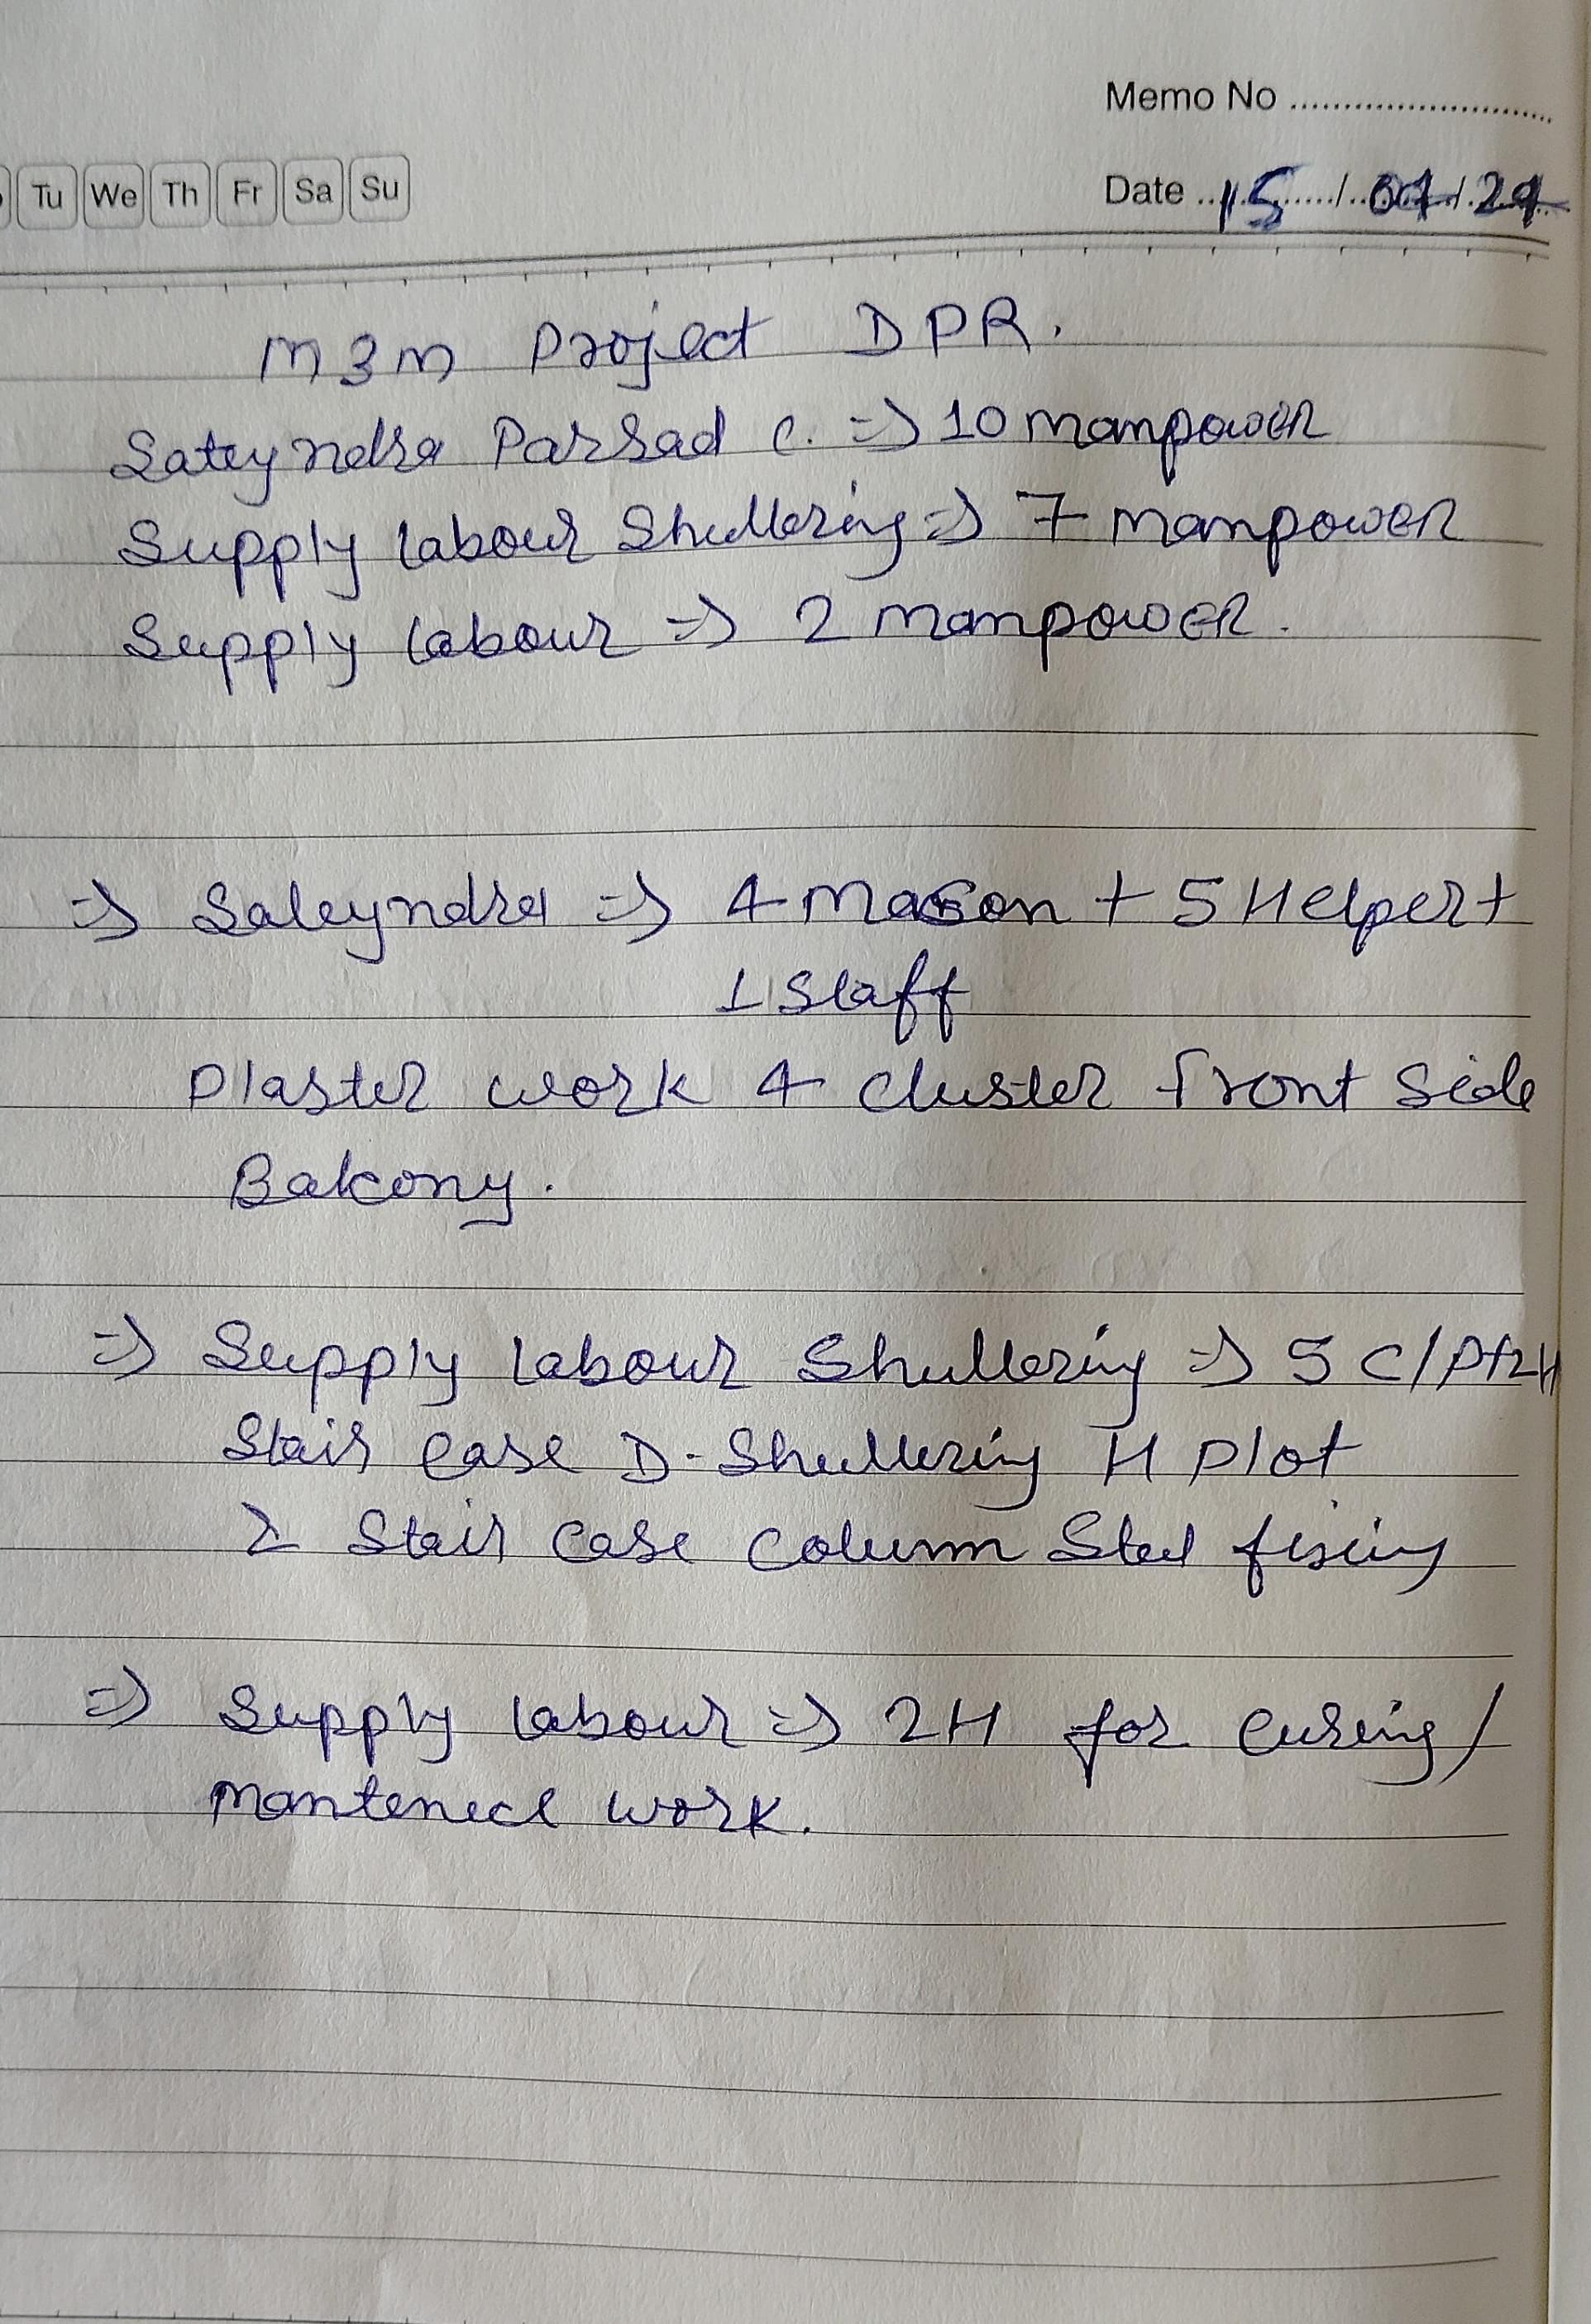 Memo No
Tu We Th Fr Sa Su
Date 15/01/24
M3M Project DPR.
Sateyndra Parsad C. => 10 manpower
Supply labour Shuttering => 7 manpower
Supply labour => 2 manpower.
=> Sateyndra => 4 Mason + 5 Helper +
1 Staff
Plaster work 4 cluster front side
Balcony.
=> Supply labour Shuttering => 5 C/P+2H
Stair case D-Shuttering H Plot
2 Stair case column Steel fixing
=> Supply labour => 2H for curing/
mantenece work.